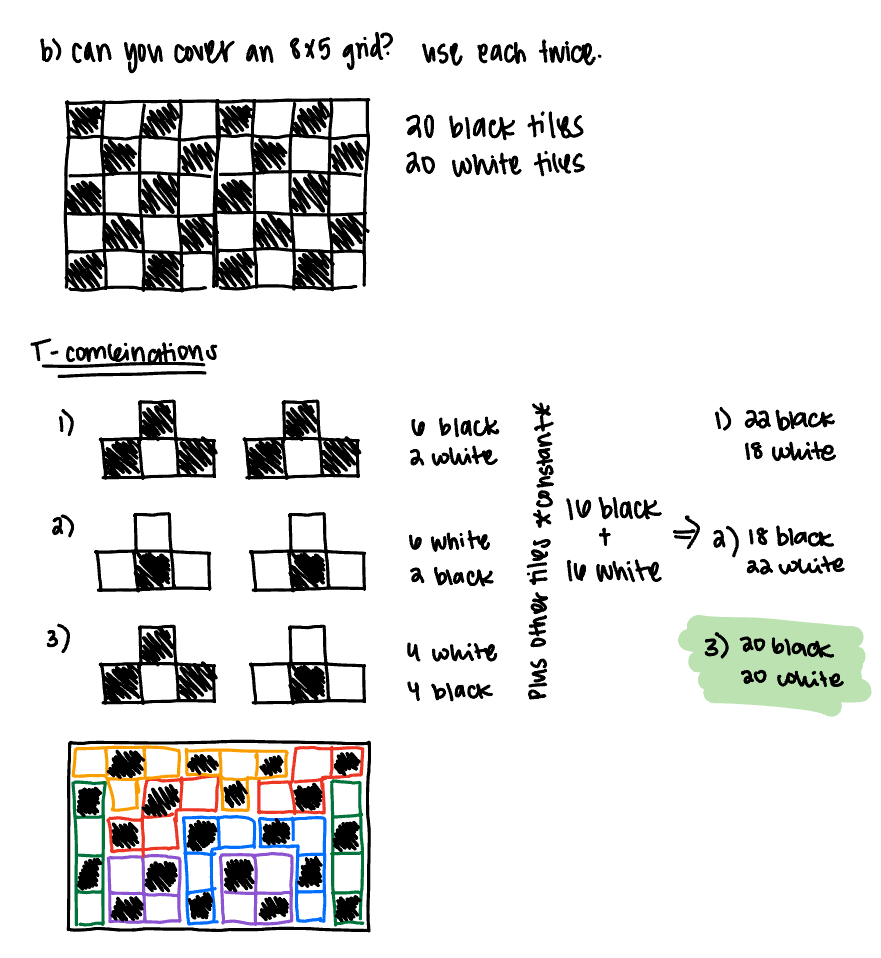 b) can you cover an 8x5 grid? use each twice.
20 black tiles
20 white tiles
T-combinations
1)
6 black
2 white
2)
6 white
2 black
3)
4 white
4 black
Plus other tiles *constant*
16 black
+
16 white
⇒
1) 22 black
18 white
2) 18 black
22 white
3) 20 black
20 white